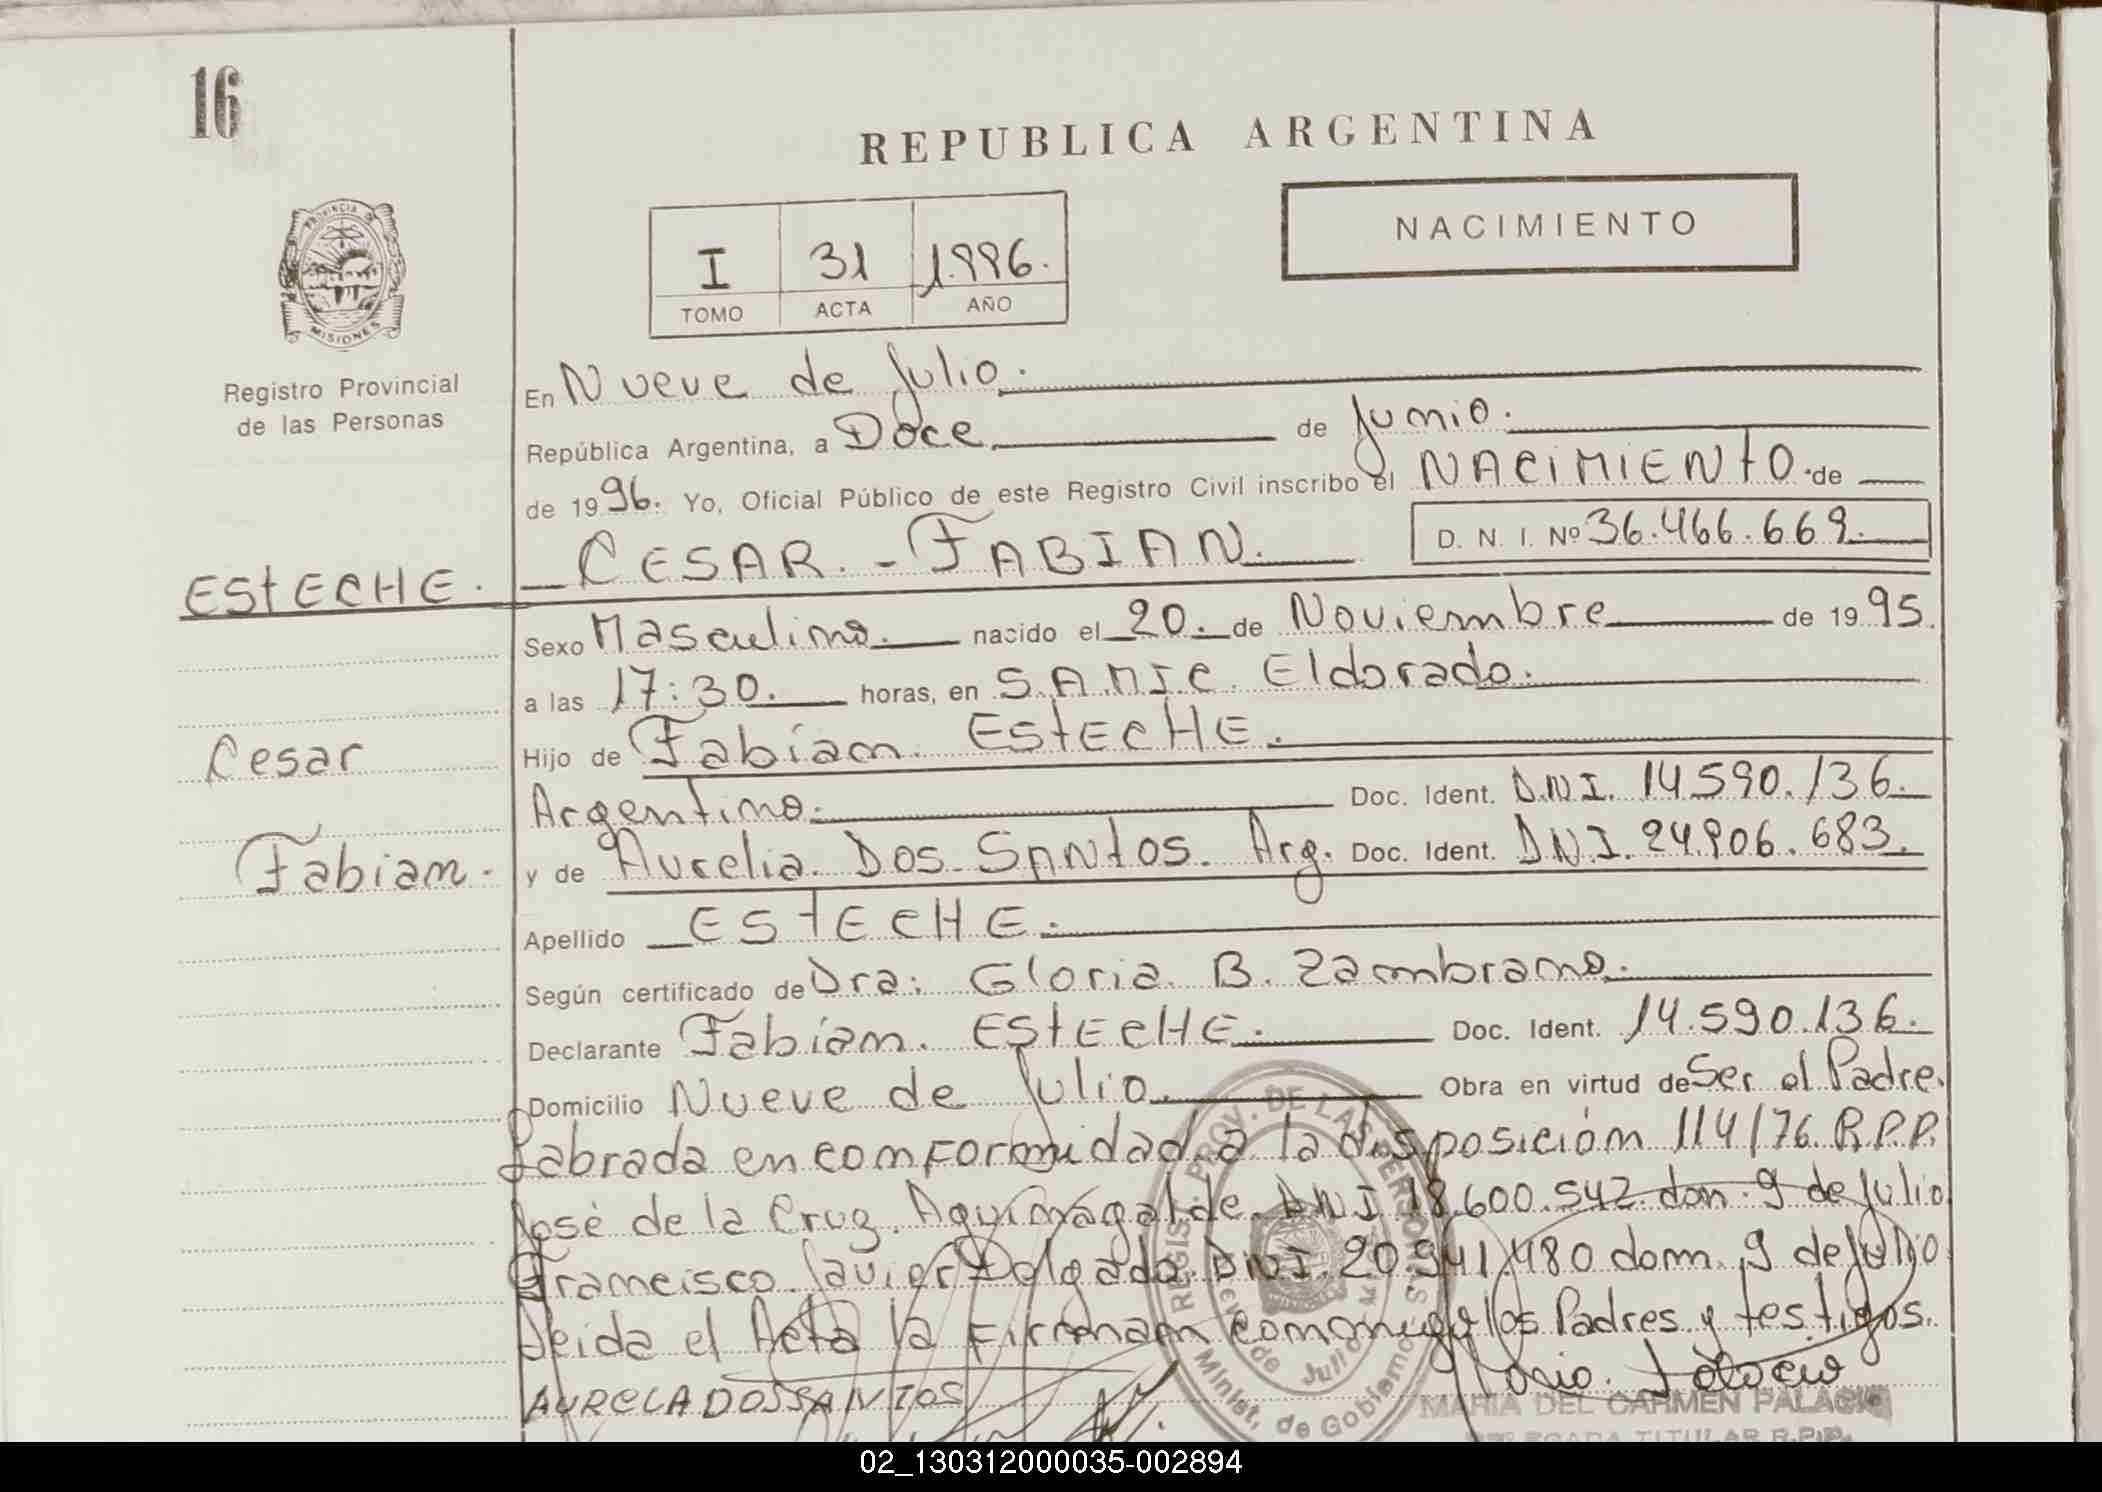 16
REPUBLICA ARGENTINA
NACIMIENTO
I 31 1.996.
TOMO ACTA AÑO
PROVINCIA DE
MISIONES
Registro Provincial
de las Personas
En Nueve de Julio.
República Argentina, a Doce de Junio.
de 1996. Yo, Oficial Público de este Registro Civil inscribo el NACIMIENTO de
CESAR.-FABIAN. D. N. I. Nº 36.466.669.
ESTECHE.
Sexo Masculino. nacido el 20. de Noviembre de 1995.
a las 17:30. horas, en S.A.M.I.C. Eldorado.
Hijo de Fabian. ESTECHE.
Cesar
Argentino. Doc. Ident. D.N.I. 14.590.136.
Fabian.
y de Aurelia. DOS SANTOS. Arg. Doc. Ident. D.N.I. 24.906.683.
Apellido ESTECHE.
Según certificado de Dra: Gloria. B. Zambrano.
Declarante Fabian. ESTECHE. Doc. Ident. 14.590.136.
Domicilio Nueve de Julio. Obra en virtud de Ser el Padre.
Labrada en conformidad a la disposición 114/76 R.P.P.
José de la Cruz DNI 18.600.542. dom. 9 de Julio
Francisco Javier Delgado. DNI. 20.941.480 dom. 9 de Julio
Leida el Acta la firman conmigo los Padres y testigos.
REGIS. PROV. DE LAS PERSONAS
Nueve de Julio
Minist. de Gobierno
AURELA DOSSANTOS
MARIA DEL CARMEN PALACIO
DELEGADA TITULAR R.P.P.
02_130312000035-002894